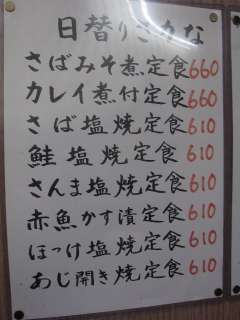 日替りさかな
さばみそ煮定食660
カレイ煮付定食660
さば塩焼定食610
鮭塩焼定食610
さんま塩焼定食610
赤魚かす漬定食610
ほっけ塩焼定食610
あじ開き焼定食610